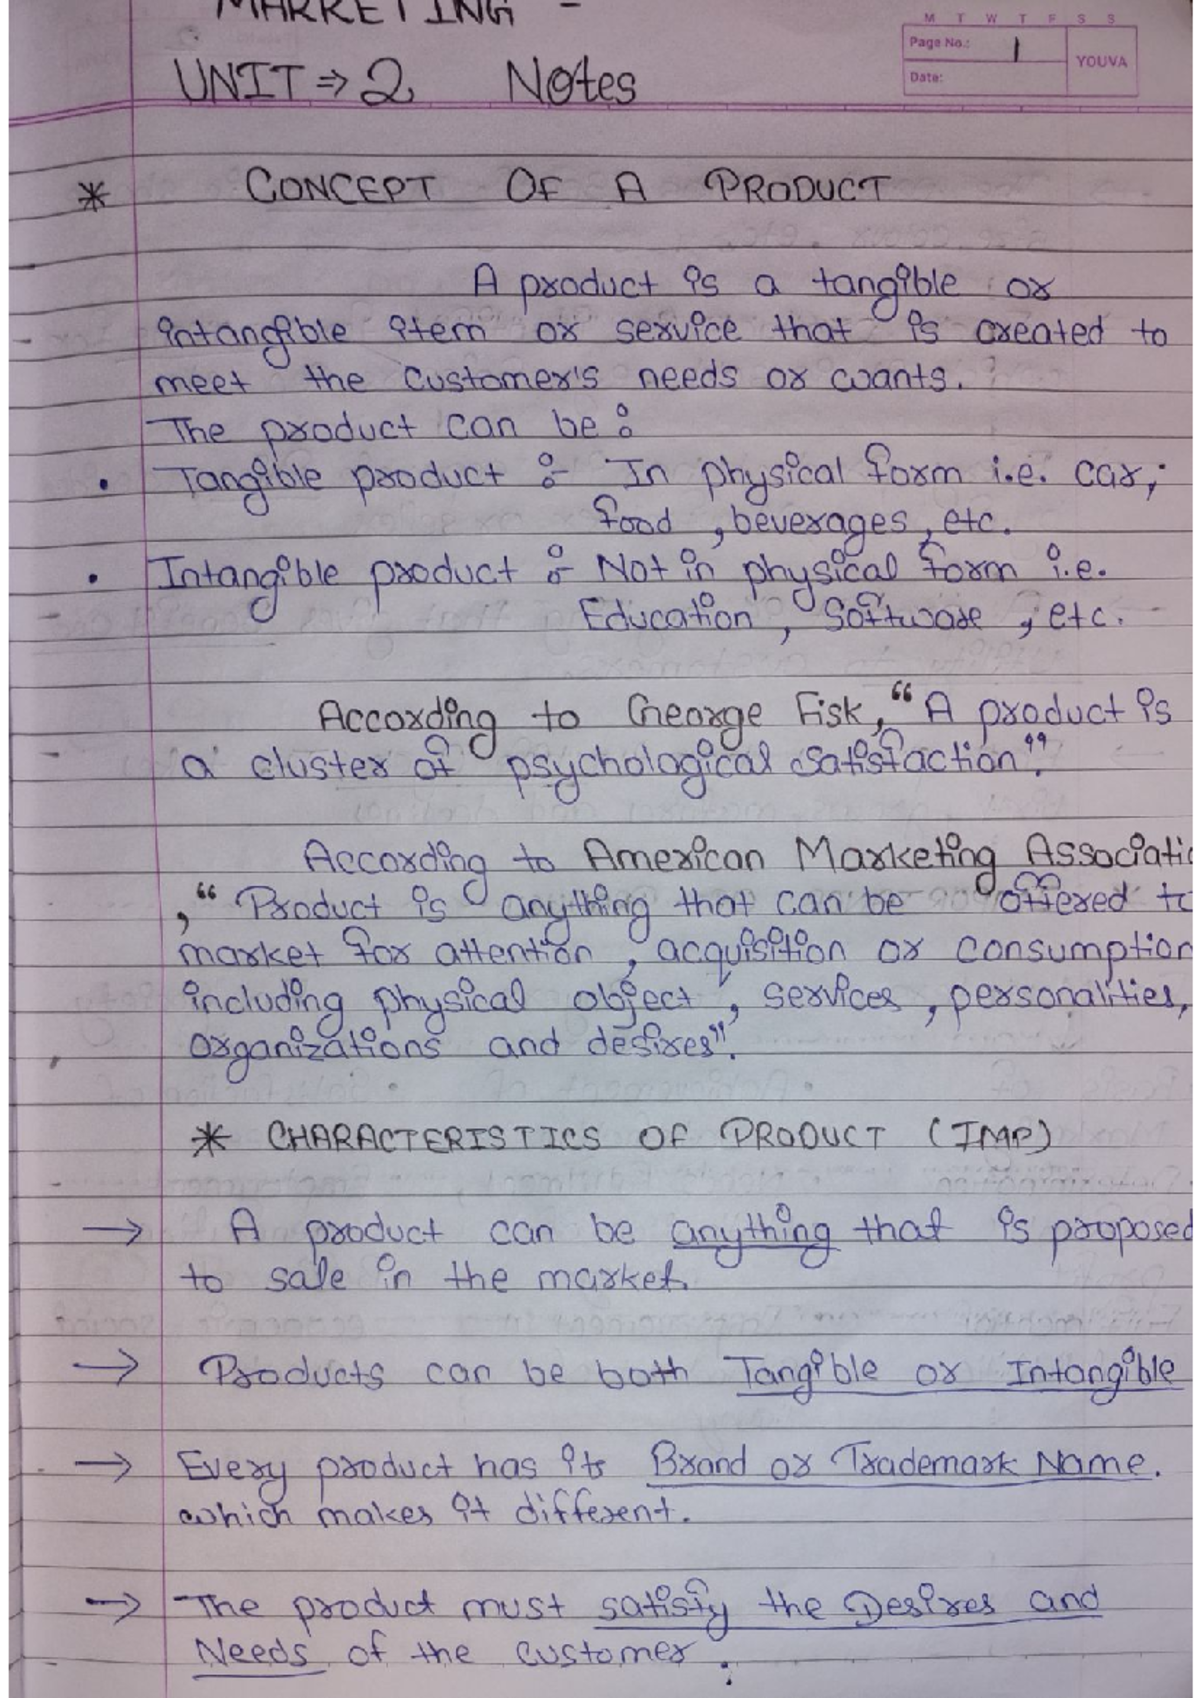 MARKETING -
M T W T F S S
Page No.: 1
YOUVA
Date:
UNIT ⇒ 2 Notes
* CONCEPT OF A PRODUCT
A product is a tangible or
intangible item or service that is created to
meet the customer's needs or wants.
The product can be :
• Tangible product :- In physical form i.e. car,
food, beverages, etc.
• Intangible product :- Not in physical form i.e.
Education, Software, etc.
According to George Fisk, “A product is
a cluster of psychological satisfaction”.
According to American Marketing Associatio
, “Product is anything that can be offered to
market for attention, acquisition or consumption
including physical object, services, personalities,
organizations and desires”.
* CHARACTERISTICS OF PRODUCT (IMP)
→ A product can be anything that is proposed
to sale in the market.
→ Products can be both Tangible or Intangible
→ Every product has its Brand or Trademark Name.
which makes it different.
→ The product must satisfy the Desires and
Needs of the customer.